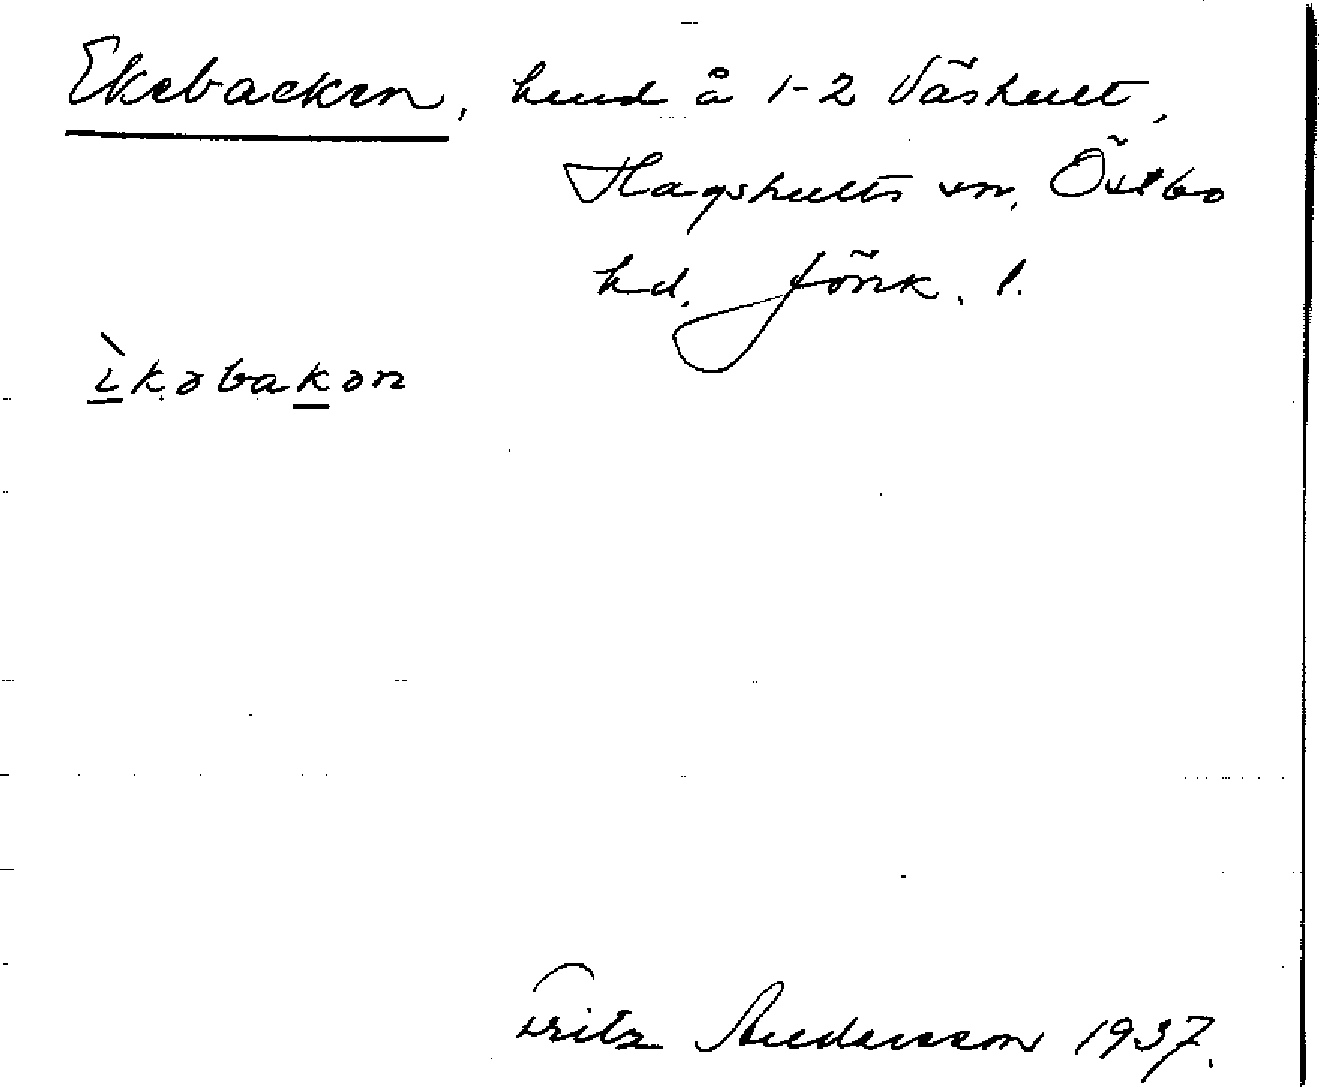 Ekebacken, hund å 1-2 Väshult,
Hagshults sn, Östbo
hd. Jönk. l.
ìkəbakən
Fritz Andersson 1937.